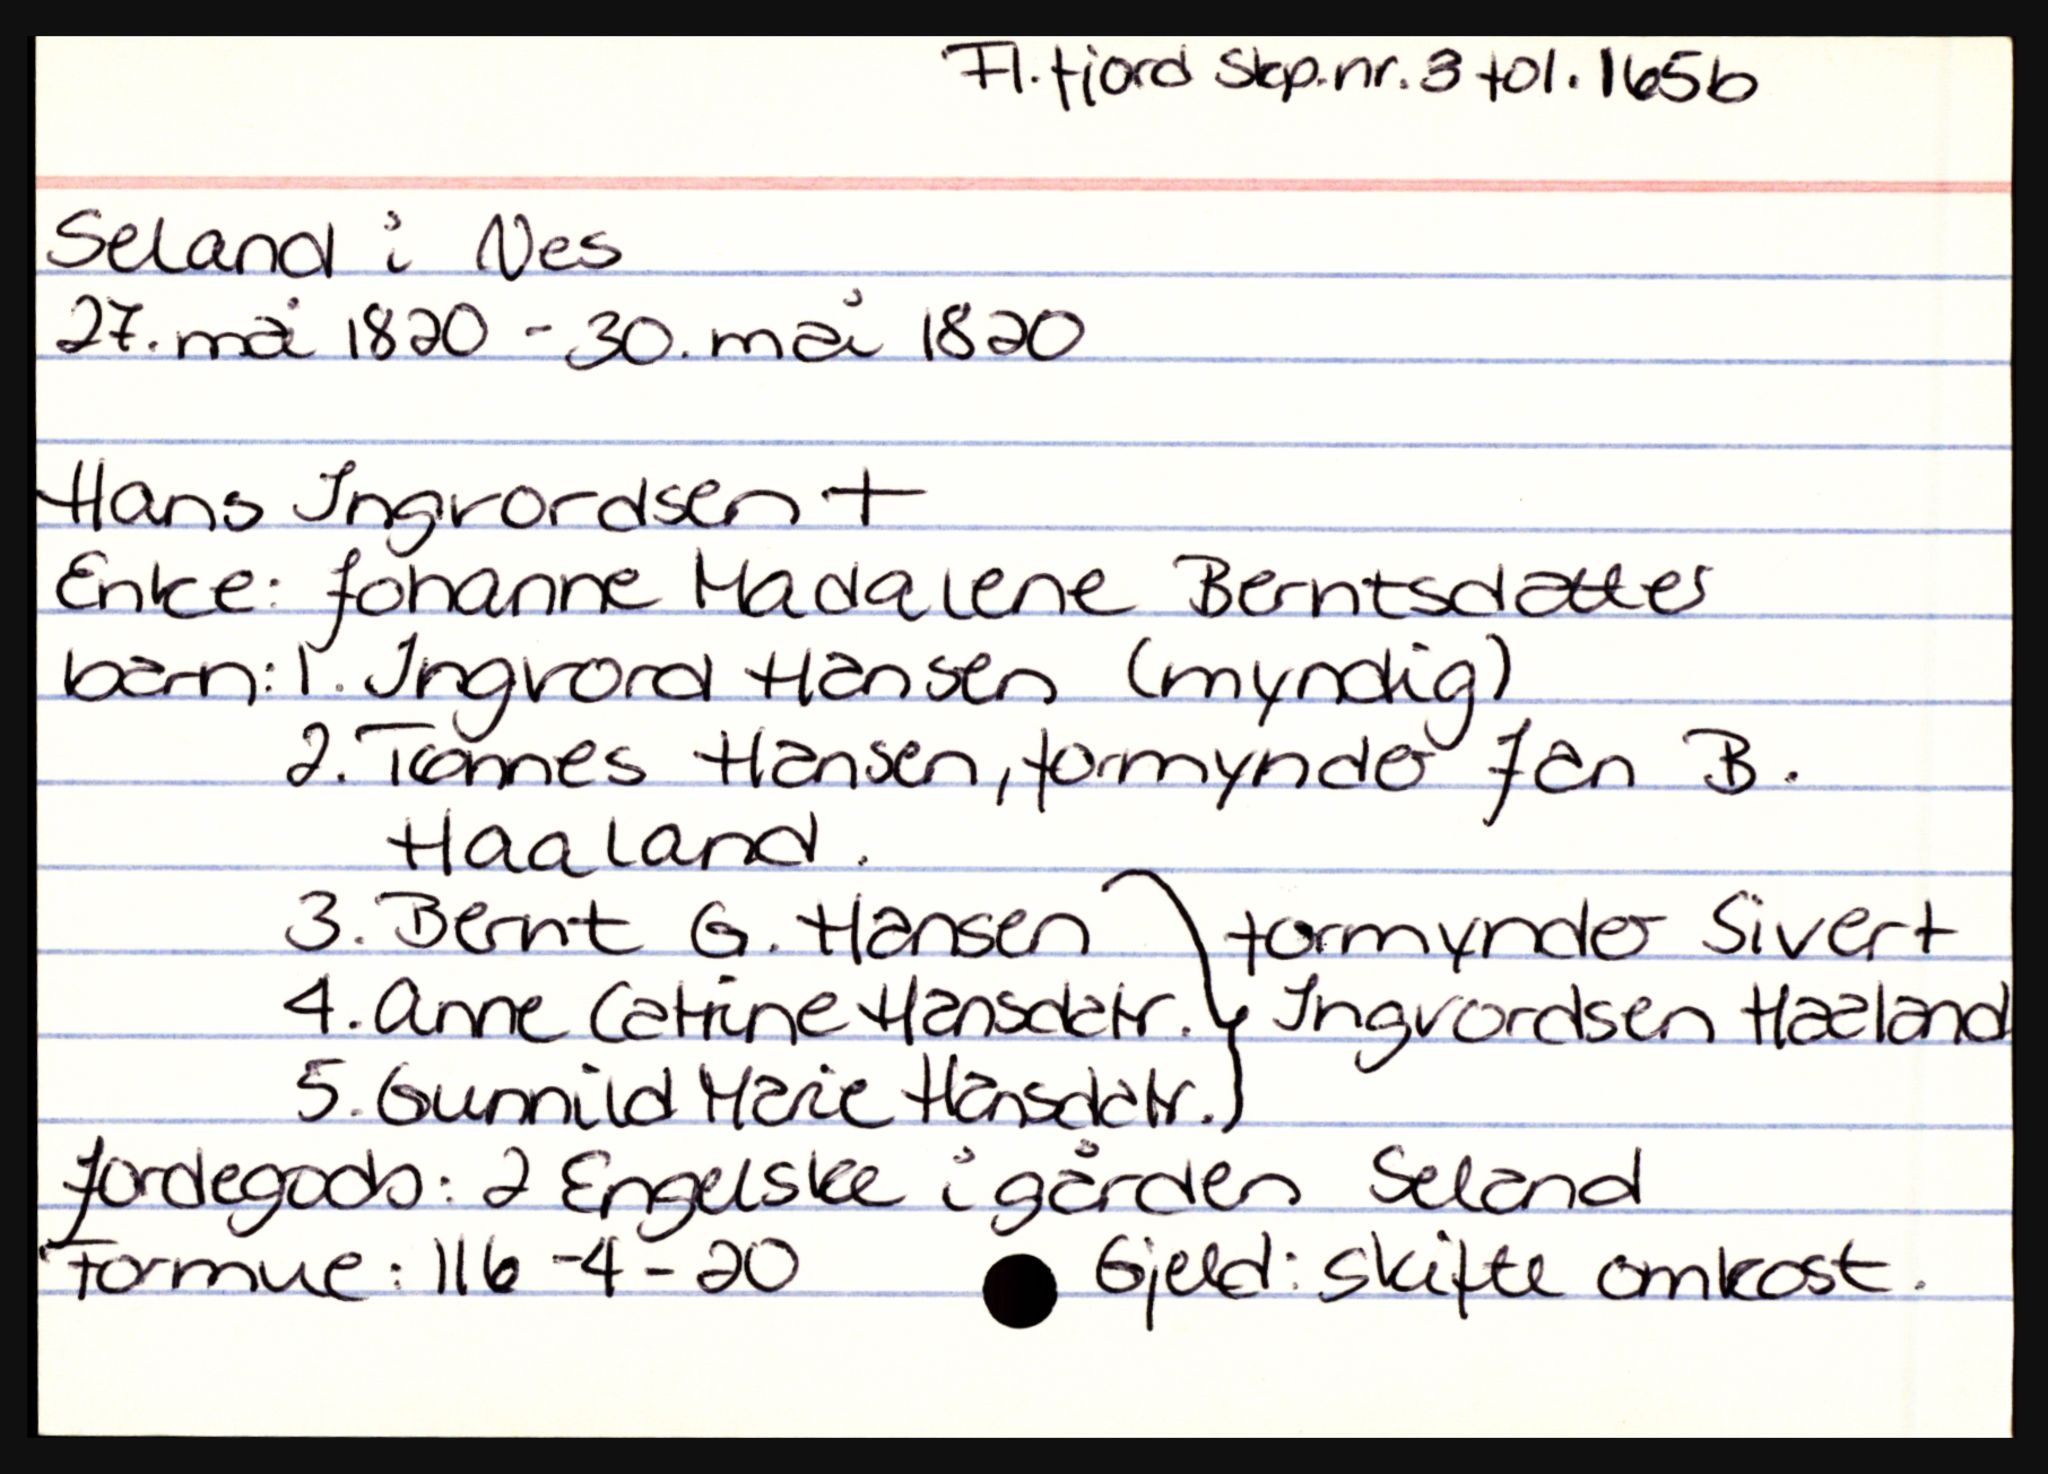 Fl.fjord Skp.nr. 3 fol. 165b
Seland i Nes
27. mai 1820 - 30. mai 1820
Hans Ingvordsen +
Enke: Johanne Madalene Berntsdatter
barn: 1. Ingvord Hansen (myndig)
2. Tønnes Hansen, formynder Jan B.
Haaland.
3. Bernt G. Hansen } formynder Sivert
4. Anne Catrine Hansdatr. } Ingvordsen Haaland
5. Gunnild Marie Hansdatr. }
Jordegods: 2 Engelske i gården Seland
Formue: 116 - 4 - 20 Gjeld: skifte omkost.